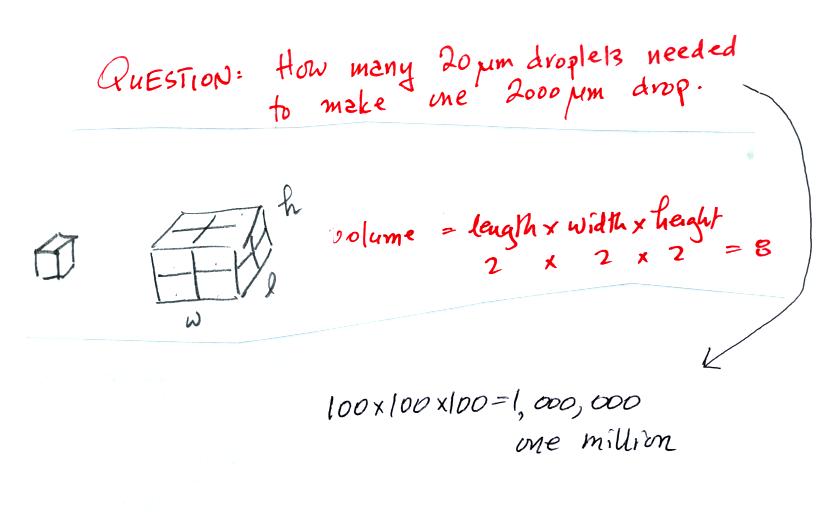 QUESTION: How many 20 μm droplets needed
to make one 2000 μm drop.
h
volume = length x width x height
2 x 2 x 2 = 8
l
w
100x100x100=1,000,000
one million